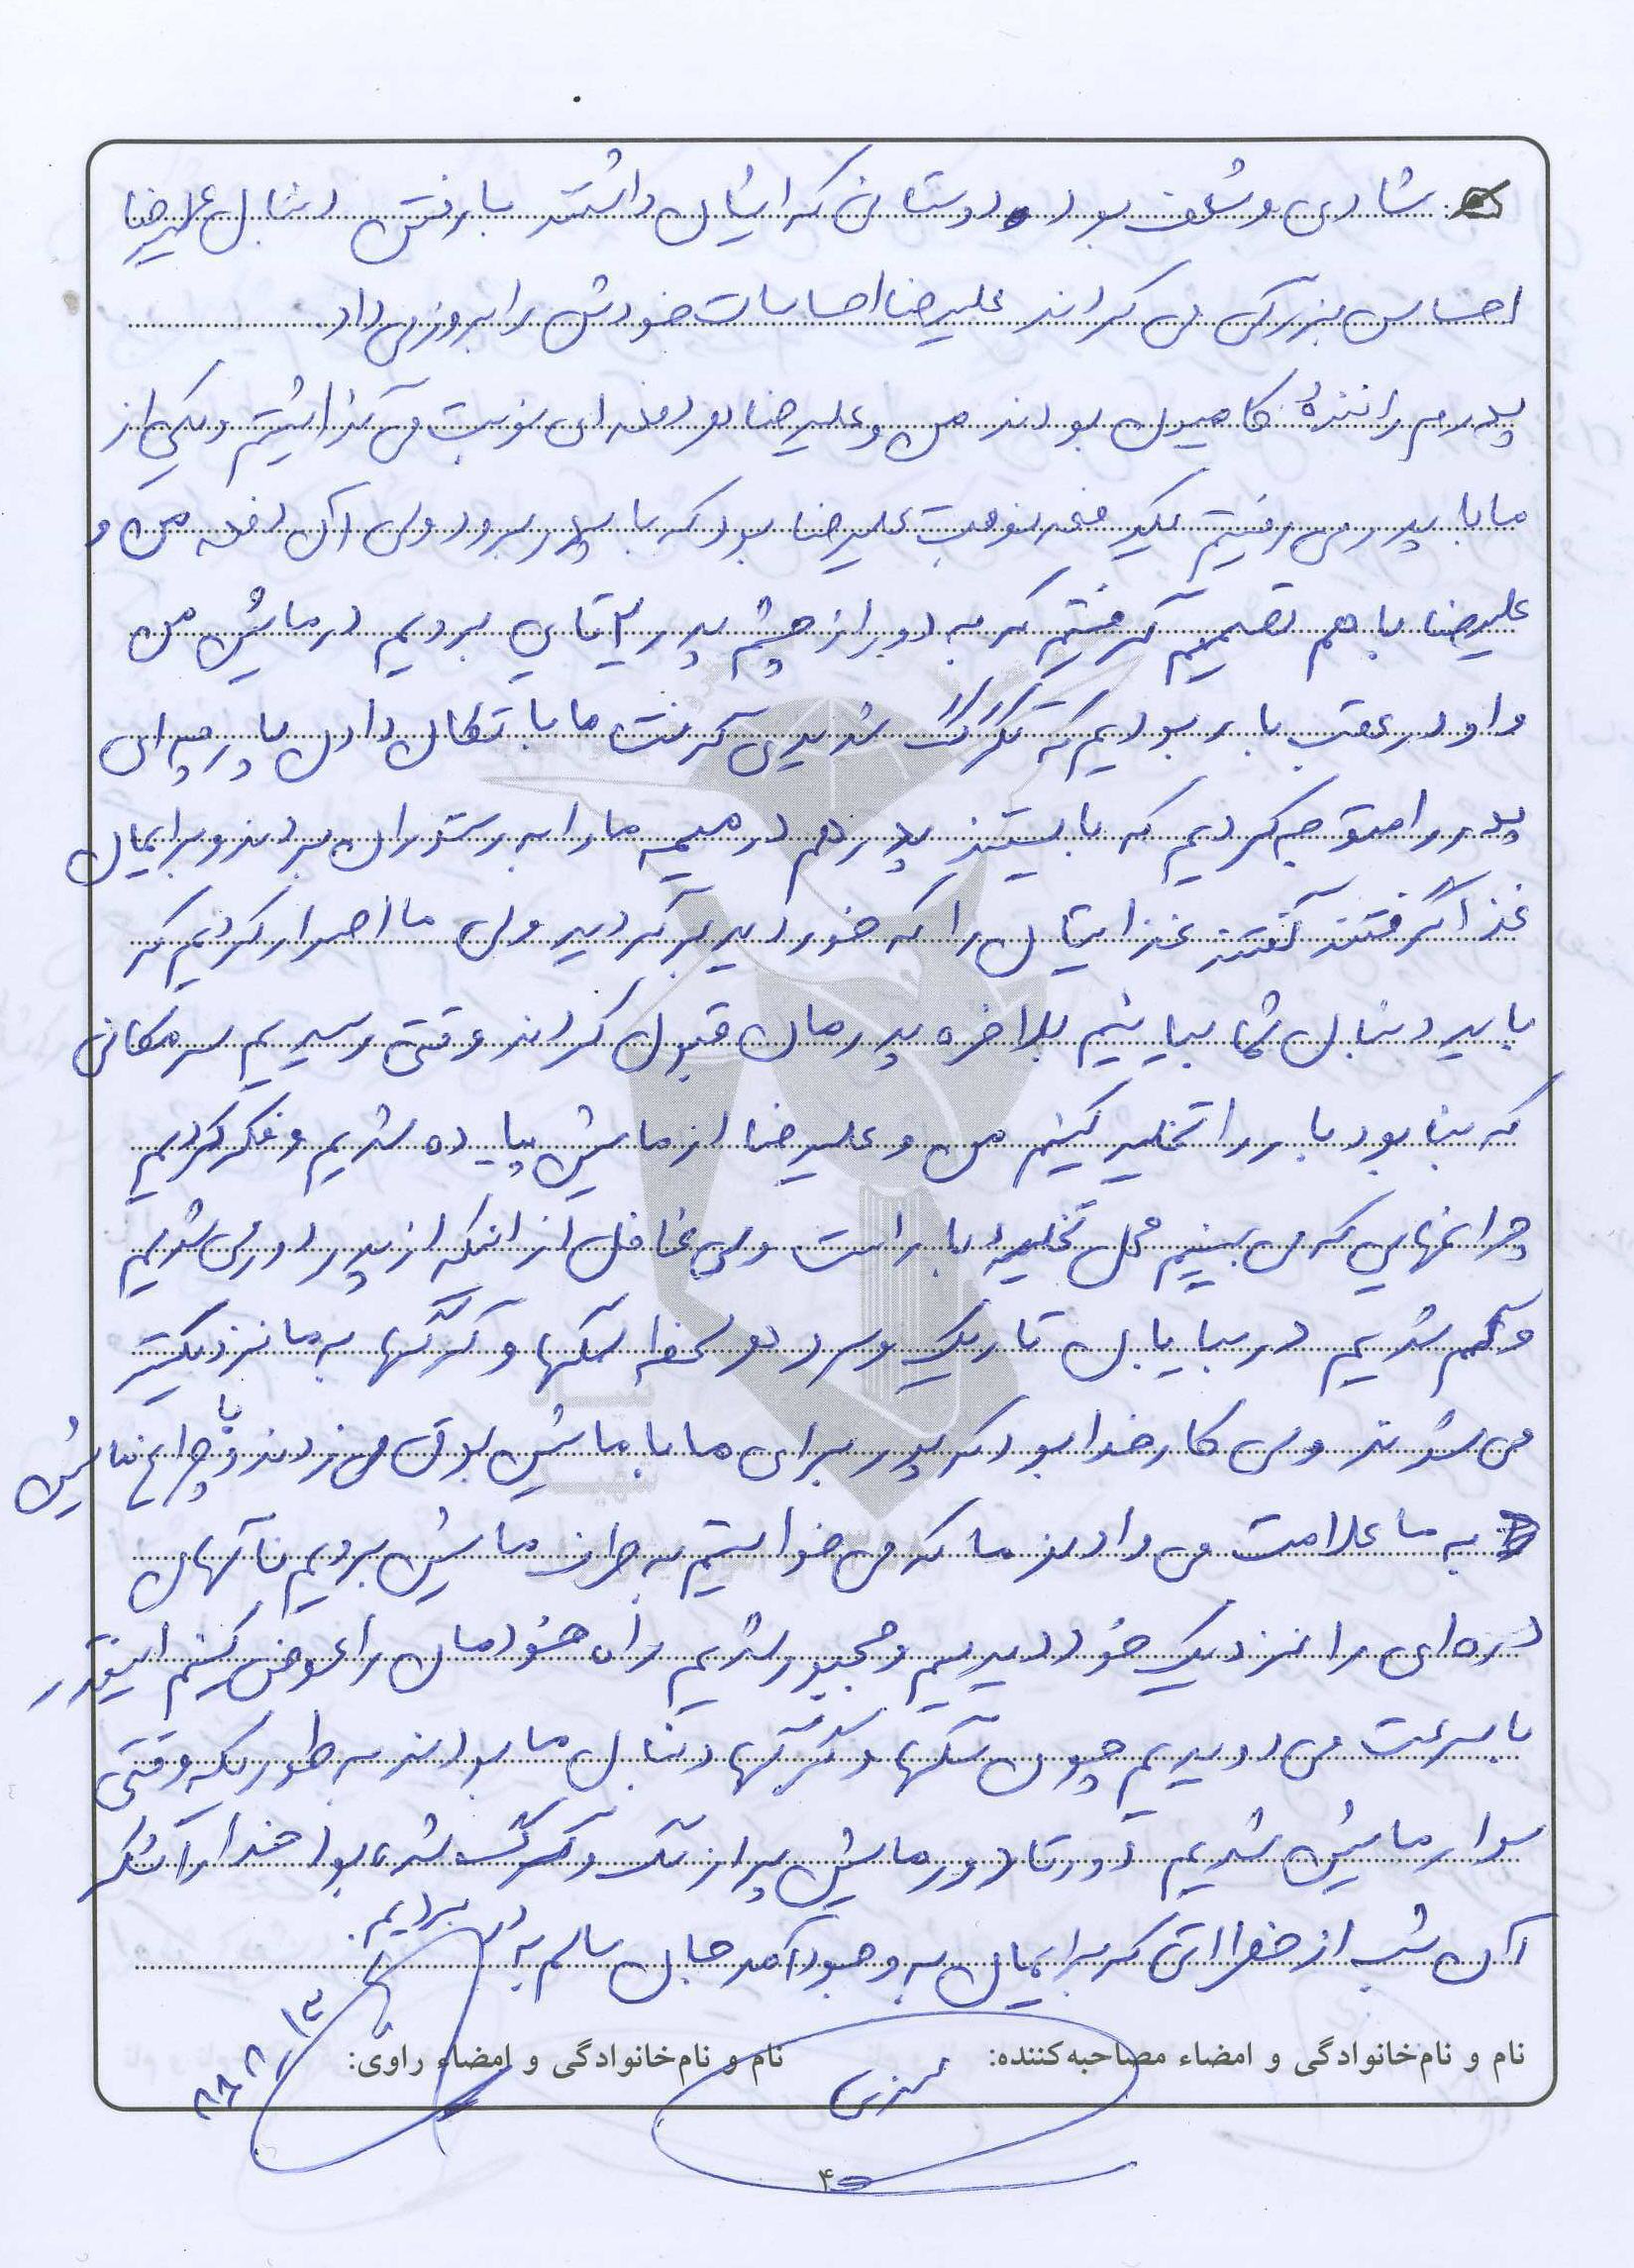 شادی و شعف بود دوستانی که ایشان داشتند با رفتن دنبال علیرضا
احساس بزرگی می کردند علیرضا احساسات خودش را بروز می داد
پدرم رانندهٔ کامیون بودند من و علیرضا هر دفعه ای نوبت می گذاشتیم و یکی از
ما با پدر می رفتیم یکدفعه نوبت علیرضا بود که با پدر برود ولی آن دفعه من و
علیرضا با هم تصمیم گرفتیم که به دور از چشم پدر ۲تایی برویم در ماشین من
و او در عقب بار بودیم که تگرگ شدیدی گرفت ما با تکان دادن پارچه ای
پدر را متوجه کردیم که بایستند پدر هم در میمه ما را به رستوران بردند و برایمان
غذا گرفتند گفتند غذایتان را که خوردید برگردید ولی ما اصرار کردیم که
باید دنبال شما بیائیم بلاخره پدرمان قبول کردند وقتی رسیدیم سر مکانی
که بنا بود بار را تخلیه کنیم من و علیرضا از ماشین پیاده شدیم و فکر کردیم
چراغهایی که می بینیم محل تخلیهٔ بار است ولی غافل از انکه از پدر دور می شدیم
و گم شدیم در بیابان تاریک و سرد هر لحظه سگها و گرگها به ما نزدیکتر
می شوند ولی کار خدا بود که پدر برای ما با ماشین بوق می زدند و با چراغ ماشین
به ما علامت می دادند ما که می خواستیم به طرف ماشین برویم ناگهان
دره ای را نزدیک خود دیدیم و مجبور شدیم راه خودمان را عوض کنیم اینقدر
با سرعت می دویدیم چون سگها و گرگها دنبال ما بودند به طوریکه وقتی
سوار ماشین شدیم دور تا دور ماشین پر از سگ و گرگ شده بود خدا را شکر
آن شب از خطراتی که برایمان به وجود آمد جان سالم به در بردیم.
نام و نام‌خانوادگی و امضاء مصاحبه‌کننده: نام و نام‌خانوادگی و امضاء راوی:
۸۸/۸/۱۳
۴